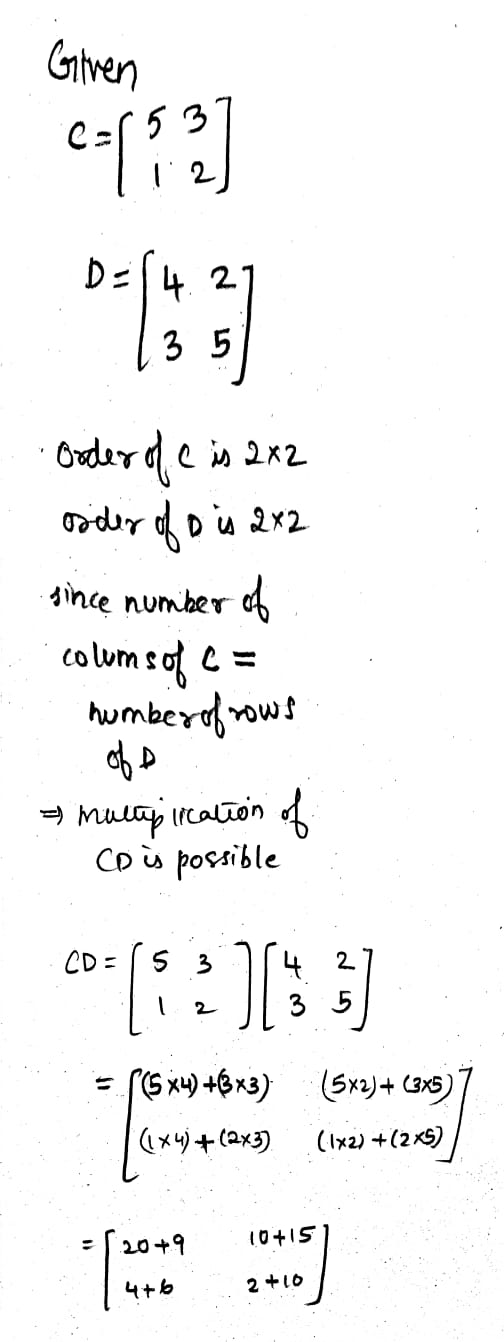 Given
C = [ 5 3
1 2 ]
D = [ 4 2
3 5 ]
Order of C is 2×2
order of D is 2×2
since number of
colums of C =
number of rows
of D
⇒ multiplication of
CD is possible
CD = [ 5 3 ] [ 4 2 ]
1 2 3 5
= [ (5×4)+(3×3) (5×2)+(3×5) ]
(1×4)+(2×3) (1×2)+(2×5)
= [ 20+9 10+15 ]
4+6 2+10